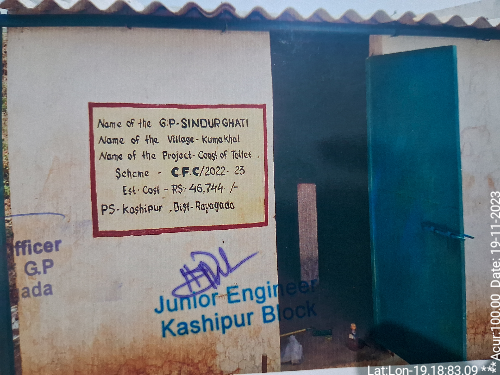 Name of the G.P-SINDURGHATI
Name of the Village-Kumakhal
Name of the Project-Const of Toilet.
Scheme - CFC/2022-23
Est-Cost - RS-46,744/-
PS-Kashipur, Dist-Rayagada
fficer
G.P
ada
Junior Engineer
Kashipur Block
Lat:Lon-19.18:83.09
Acur:100.00 Date: 19-11-2023